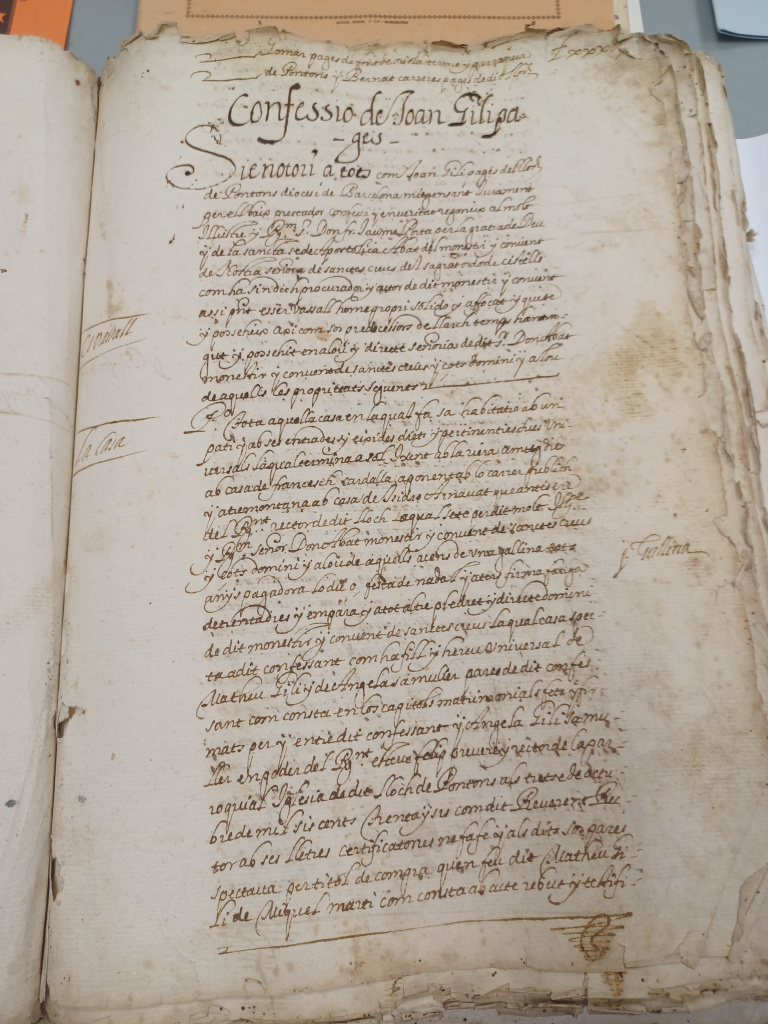 Confessio de Joan Gili pa-
ges
Sie notori a tots com Joan Gili pages del lloch
de Pontons diocesi de Barcelona mitgensant Jurament
confesa y en veritat regoneix al molt
Illustre y Rm. Sr. Don fr. Jaume Porta per la gracia de Deu
y de la sancta sede Apostolica Abat del monestir y convent
de Nostra señora de sanctes creus del sagrat orde de cistells
com ha sindich procurador y actor de dit monestir y convent
assi pnt esser vassall home propri solido y affocat y que te
y posseheix axi com sos predecessors de llarch temps han tin-
gut y possehit en alou y directe señoria de dit Sr. Don Abat
monestir y convent de sanctes creus y tots domini y alou
de aquells les proprietats seguents
vassall
Po. Tota aquella casa en la qual fa sa habitatio ab un
pati y ab ses entrades y exides drets y pertinenties sues uni-
versals la qual termina a sol ixent ab la
la Casa
ab casa de francesch Cardalla a ponent ab lo carrer publich
y a tremontana ab casa de Isidro Arnavat que antes era
del Rnt rector de dit lloch la qual se te per dit molt Ille
y Rm señor Don Abat monestir y convent de sanctes creus
y tots domini y alou de aquells a cens de una gallina tots
anys pagadora lo die o festa de nadal y a ters firma fatiga
p. Gallina
de trenta dies y empara y a tot altre ple dret y directe domini
de dit monestir y convent de sanctes creus la qual casa spec-
ta a dit confessant com ha fill y hereu universal de
Matheu Gili y de Angela sa muller pares de dit confes-
sant com consta en los capitols matrimonials fets y fir-
mats per y entre dit confessant y Angela Gili sa mu-
ller en poder del Rnt Esteve prevere y rector de la par-
roquial Iglesia de dit lloch de Pontons als tretse de octu-
bre de mil sis cents trenta y sis com dit Reverent Rec-
tor ab ses lletres certificatories ne fa fe y als dits sos pares
spectava per titol de compra quen feu dit Matheu Gi-
li de Miquel marti com consta ab acte rebut y testifi-